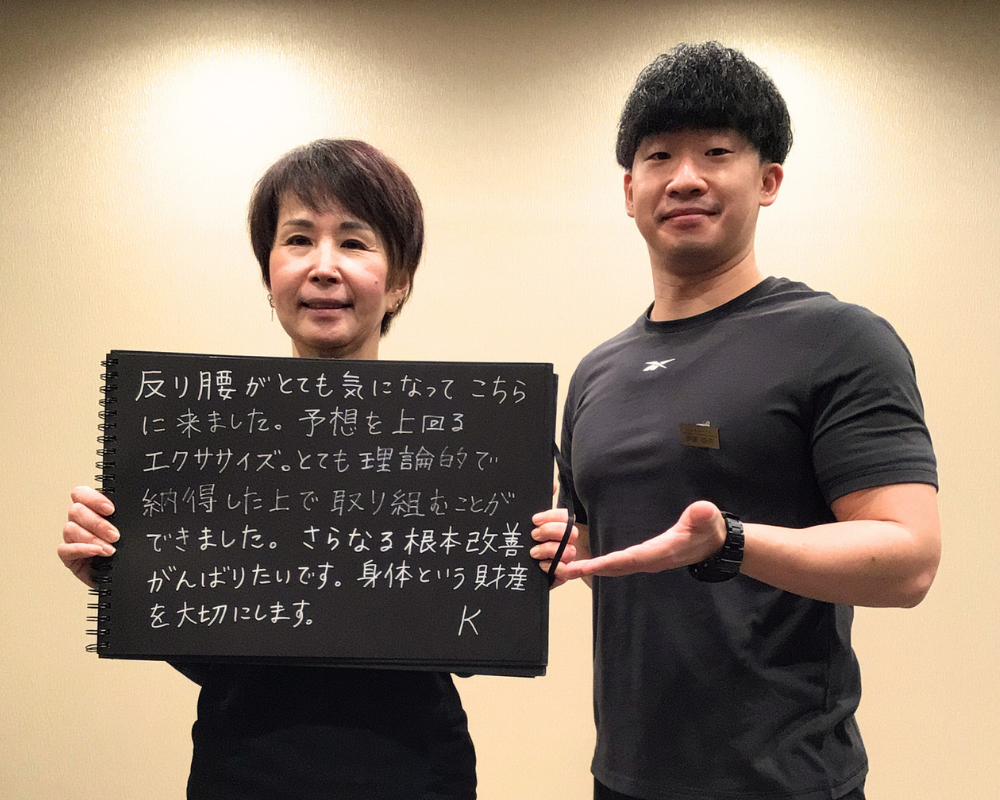 反り腰がとても気になって こちら
に来ました。予想を上回る
エクササイズ。とても理論的で
納得した上で取り組むことが
できました。さらなる根本改善
がんばりたいです。身体という財産
を大切にします。
K